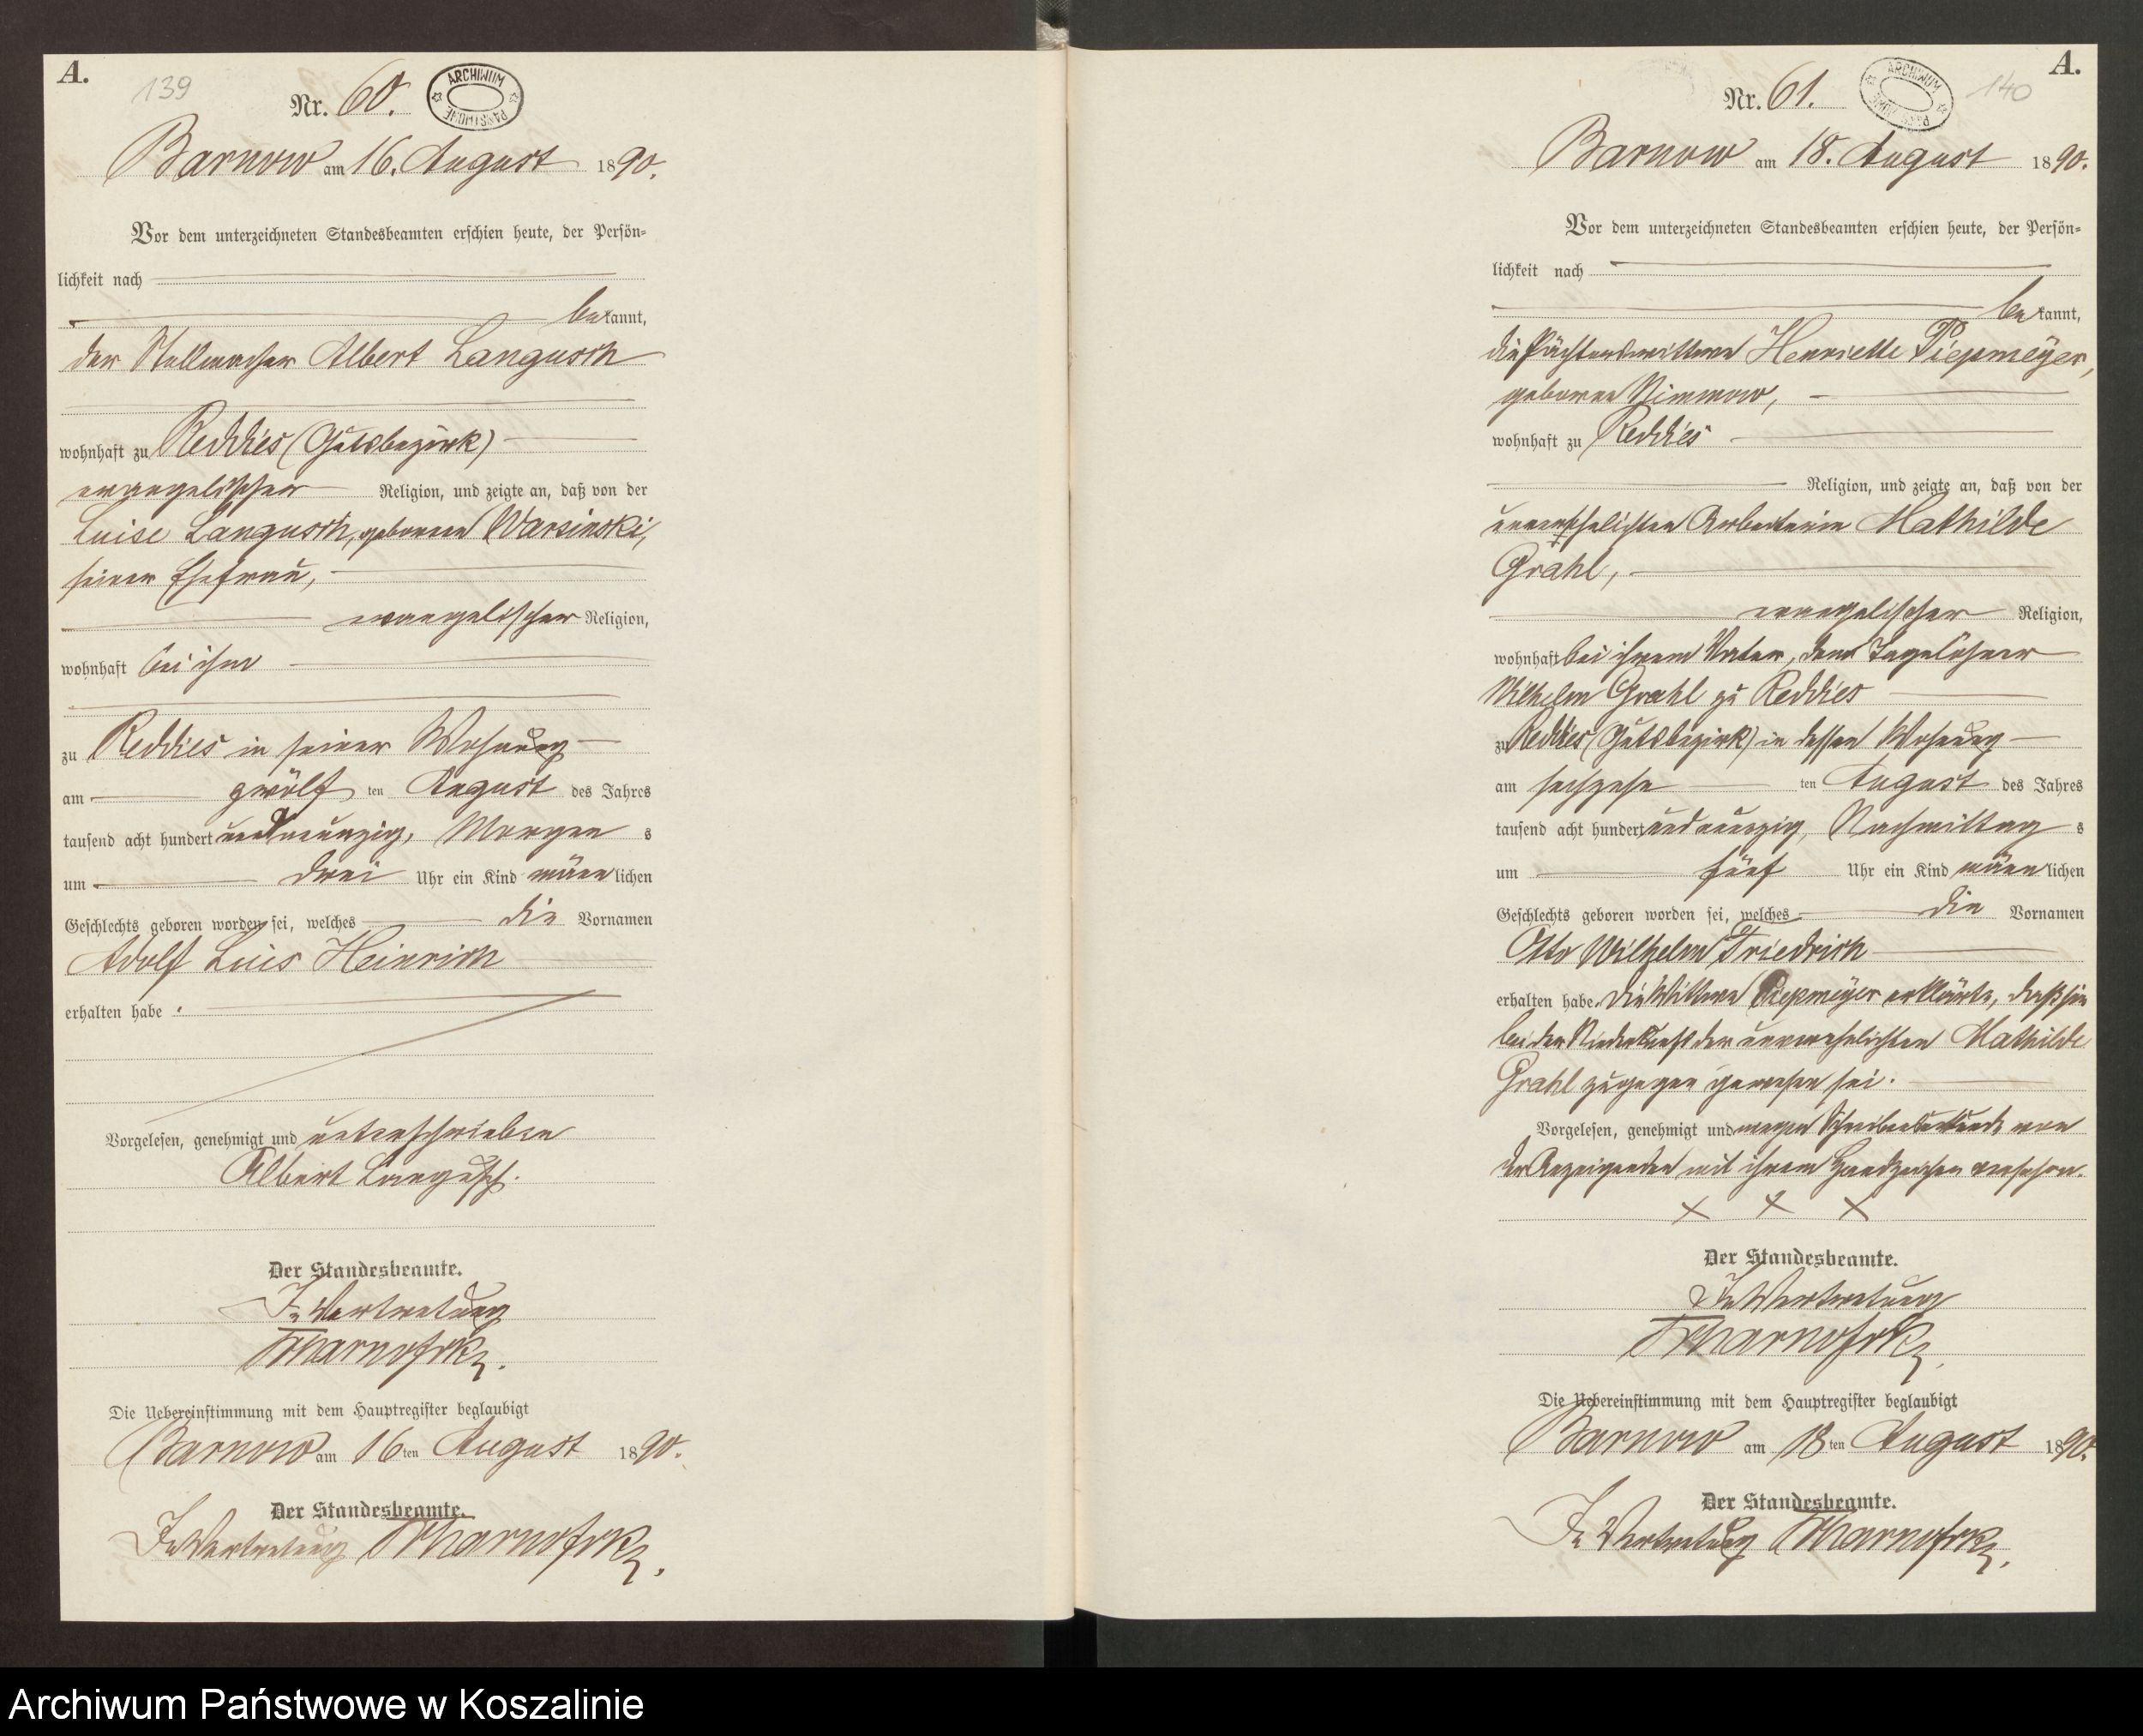 A.
139
Nr. 60.
ARCHIWUM PAŃSTWOWE
Barnow am 16. August 1890.
Vor dem unterzeichneten Standesbeamten erschien heute, der Persön=
lichkeit nach
bekannt,
der Stellmacher Albert Langusch
wohnhaft zu Reddies (Gutsbezirk)
evangelischer Religion, und zeigte an, daß von der
Luise Langusch, geborenen Warsinski,
seiner Ehefrau,
evangelischer Religion,
wohnhaft bei ihm
zu Reddies in seiner Wohnung
am zwölf ten August des Jahres
tausend acht hundert und neunzig, Morgen s
um drei Uhr ein Kind männlichen
Geschlechts geboren worden sei, welches die Vornamen
Adolf Luis Heinrich
erhalten habe.
Vorgelesen, genehmigt und unterschrieben
Albert Langusch.
Der Standesbeamte.
In Vertretung
Die Uebereinstimmung mit dem Hauptregister beglaubigt
Barnow am 16ten August 1890.
Der Standesbeamte.
In Vertretung
A.
140
Nr. 61.
ARCHIWUM PAŃSTWOWE
Barnow am 18. August 1890.
Vor dem unterzeichneten Standesbeamten erschien heute, der Persön=
lichkeit nach
bekannt,
die Pächterswittwe Henriette Piepmeÿer,
geborene Nimmow,
wohnhaft zu Reddies
Religion, und zeigte an, daß von der
unverehelichten Arbeiterin Mathilde
Grahl,
evangelischer Religion,
wohnhaft bei ihrem Vater, dem Tagelöhner
Wilhelm Grahl zu Reddies
zu Reddies (Gutsbezirk) in dessen Wohnung
am sechzehn ten August des Jahres
tausend acht hundert und neunzig, Nachmittag s
um fünf Uhr ein Kind männlichen
Geschlechts geboren worden sei, welches die Vornamen
Otto Wilhelm Friedrich
erhalten habe. Die Wittwe Piepmeÿer erklärte, daß sie
bei der Niederkunft der unverehelichten Mathilde
Grahl zugegen gewesen sei.
Vorgelesen, genehmigt und wegen Schreibensunkunde von
der Anzeigenden mit ihrem Handzeichen versehen.
x x x
Der Standesbeamte.
In Vertretung
Die Uebereinstimmung mit dem Hauptregister beglaubigt
Barnow am 18ten August 1890.
Der Standesbeamte.
In Vertretung
Archiwum Państwowe w Koszalinie